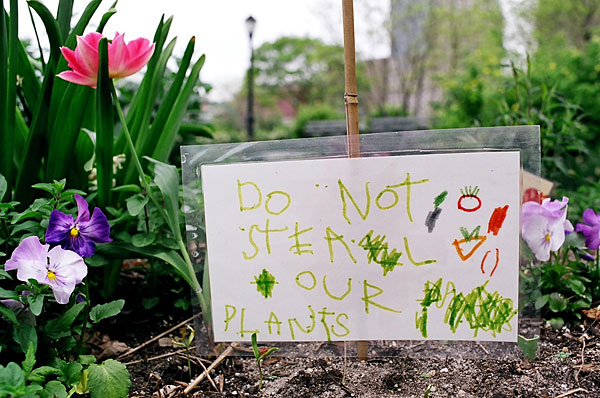 DO NOT
STEAL
OUR
PLANTS